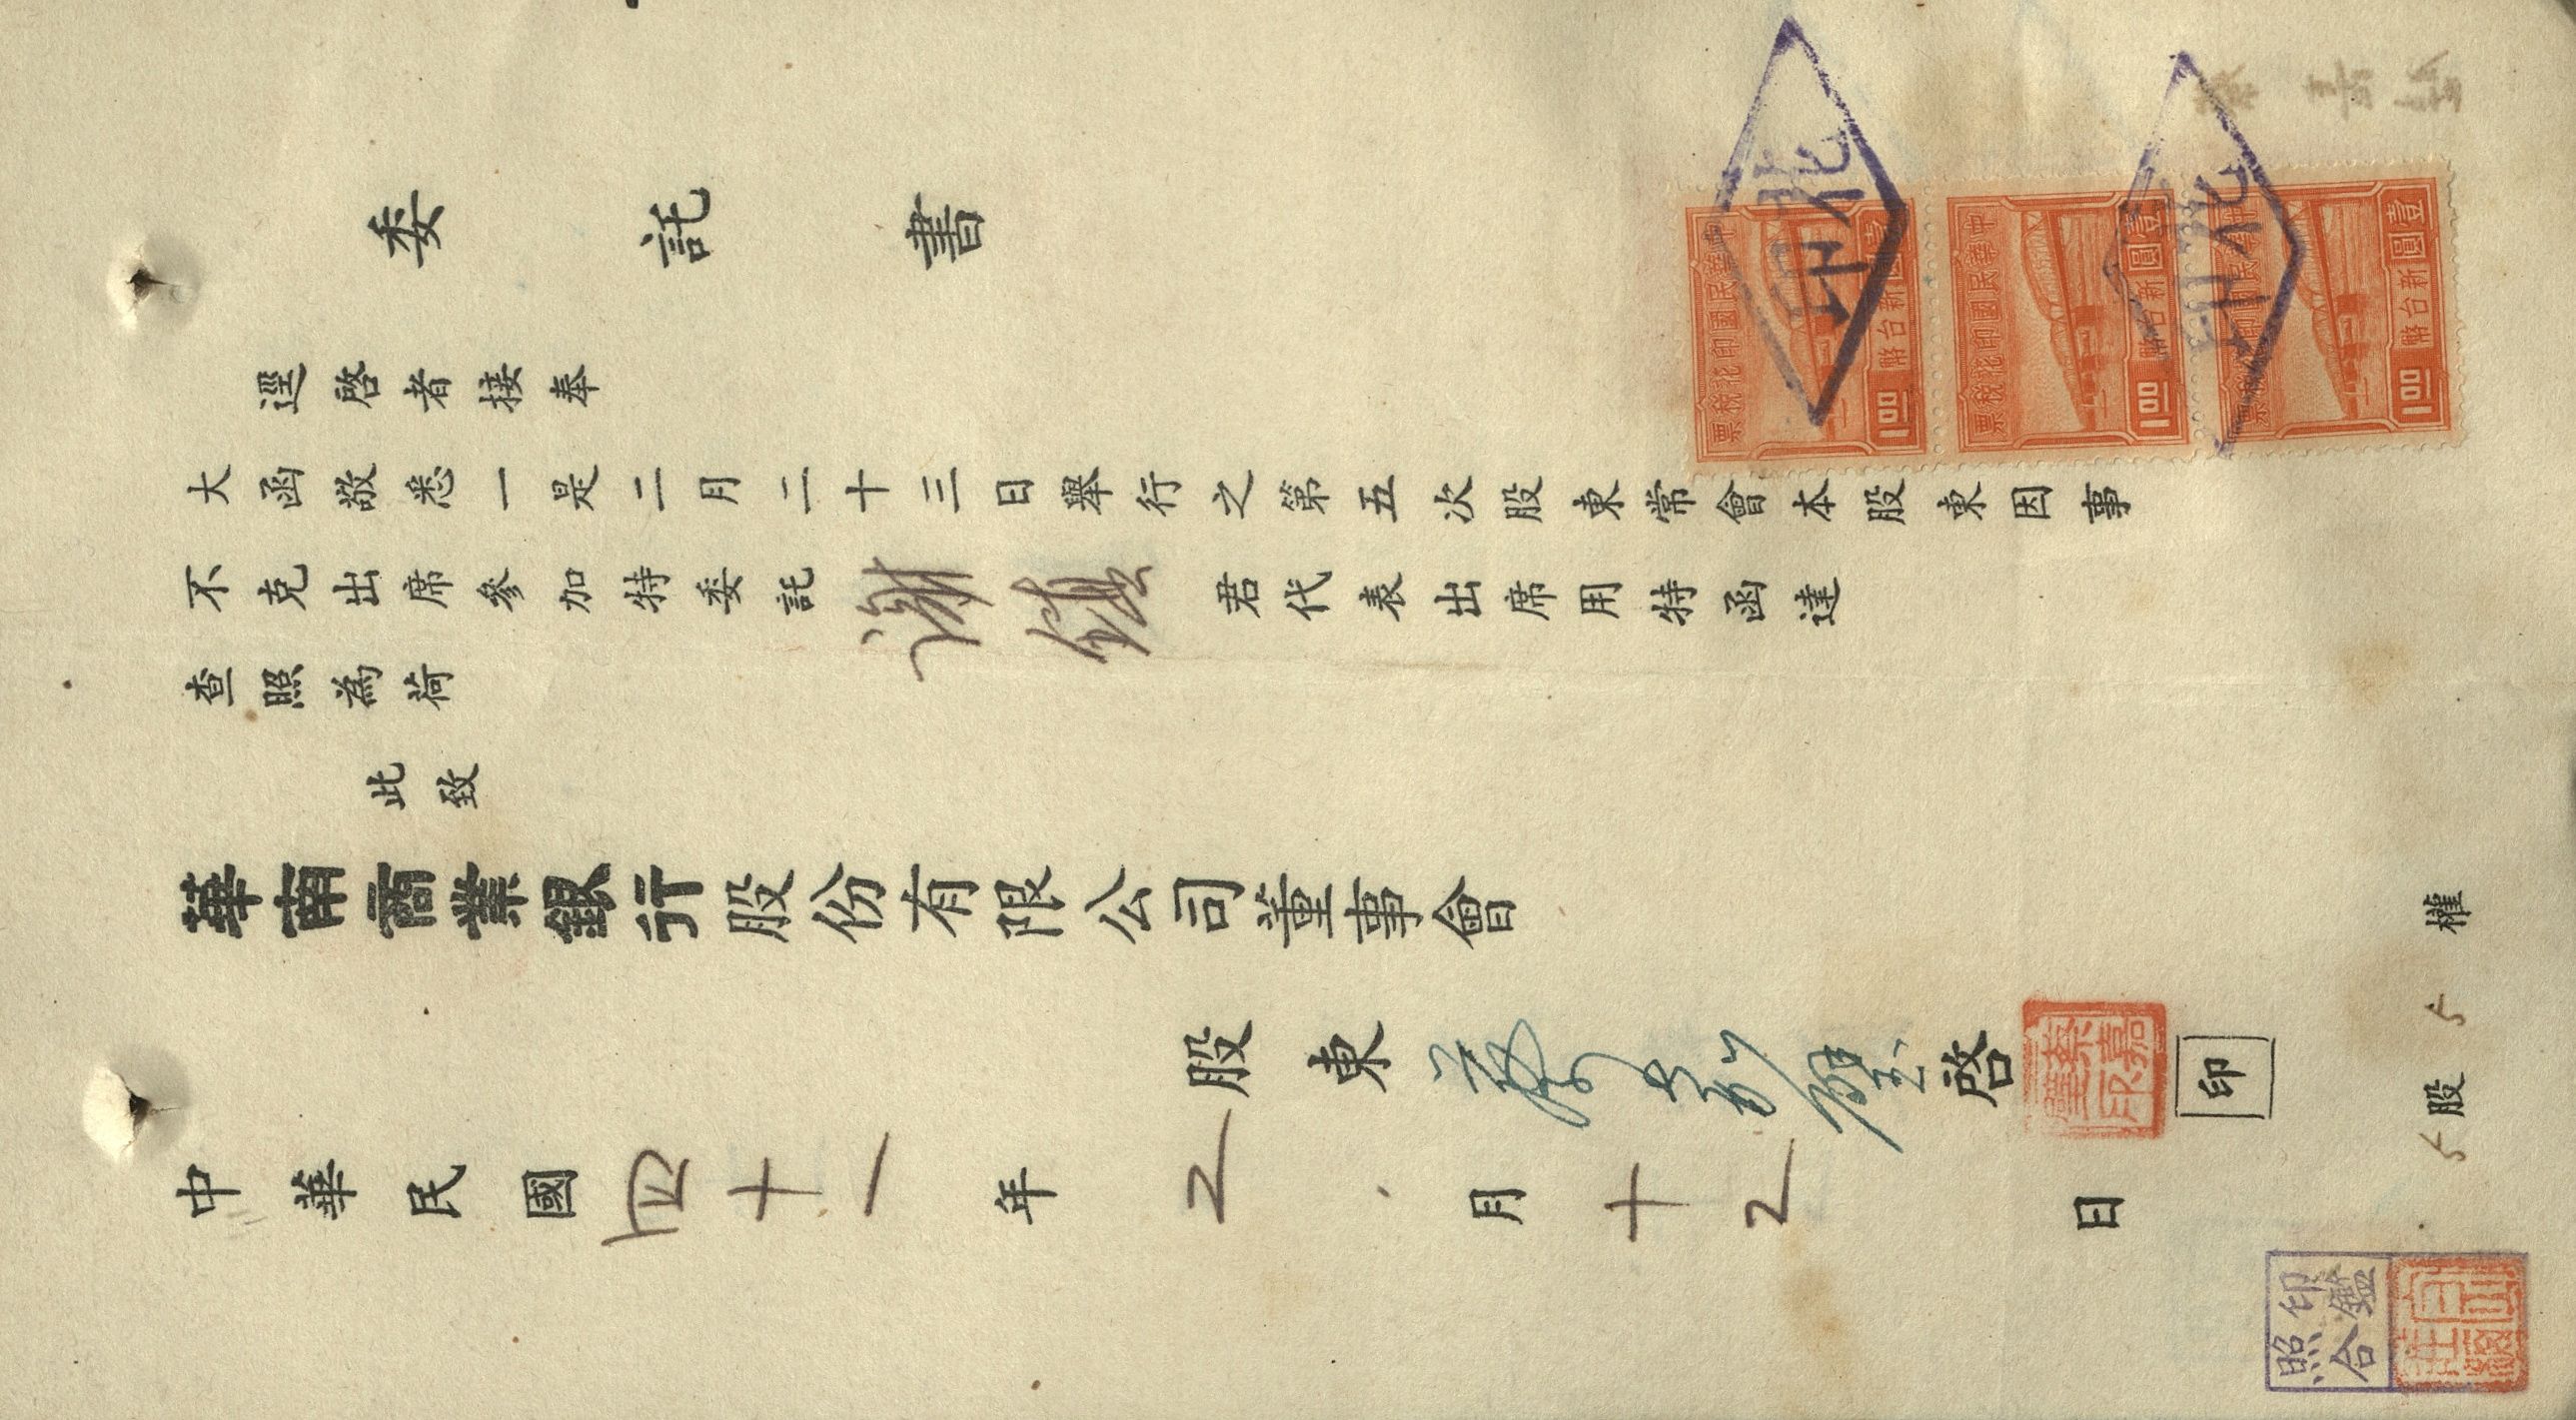 委託書
逕啓者接奉
大函敬悉一是二月二十三日舉行之第五次股東常會本股東因事
不克出席參加特委託謝鎮君代表出席用特函達
查照為荷
此致
華南商業銀行股份有限公司董事會
股東 啓 印
中華民國四十一年2月十2日
5股5權
中華民國印花稅票
新台幣壹圓
1.00
中華民國印花稅票
新台幣壹圓
1.00
中華民國印花稅票
新台幣壹圓
1.00
印鑑
照合